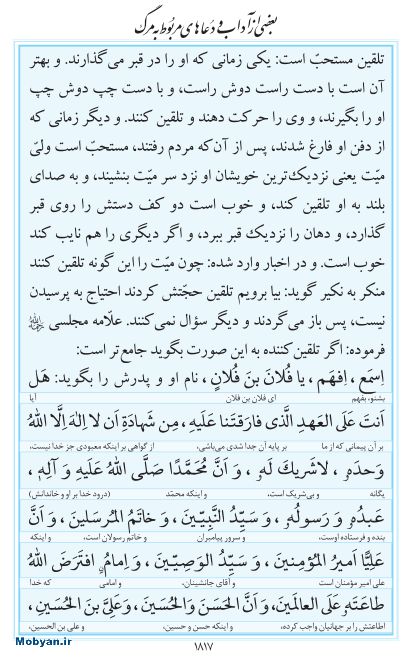 بعضی از آداب و دعاهای مربوط به مرگ
تلقین مستحبّ است: یکی زمانی که او را در قبر می‌گذارند. و بهتر
آن است با دست راست دوش راست، و با دست چپ دوش چپ
او را بگیرند، و وی را حرکت دهند و تلقین کنند. و دیگر زمانی که
از دفن او فارغ شدند، پس از آن‌که مردم رفتند، مستحبّ است ولیّ
میّت یعنی نزدیک‌ترین خویشان او نزد سر میّت بنشیند، و به صدای
بلند به او تلقین کند، و خوب است دو کف دستش را روی قبر
گذارد، و دهان را نزدیک قبر ببرد، و اگر دیگری را هم نایب کند
خوب است. و در اخبار وارد شده: چون میّت را این گونه تلقین کنند
منکر به نکیر گوید: بیا برویم تلقین حجتّش کردند احتیاج به پرسیدن
نیست، پس باز می‌گردند و دیگر سؤال نمی‌کنند. علّامه مجلسی
فرموده: اگر تلقین کننده به این صورت بگوید جامع‌تر است:
اِسمَع ، اِفهَم ، یا فُلانَ بنَ فُلانٍ ، نام او و پدرش را بگوید: هَل
بشنو، بفهم ای فلان بن فلان آیا
اَنتَ عَلَی العَهدِ الَّذی فارَقتَنا عَلَیهِ ، مِن شَهادَةِ اَن لا اِلٰهَ اِلَّا اللهُ
بر آن پیمانی که از ما بر پایه آن جدا شدی می‌باشی، از گواهی بر اینکه معبودی جز خدا نیست،
وَحدَهُ ، لاشَریكَ لَهُ ، وَ اَنَّ مُحَمَّدًا صَلَّی اللهُ عَلَیهِ وَ آلِهِ ،
یگانه و بی‌شریک است، و اینکه محمّد (درود خدا بر او و خاندانش)
عَبدُهُ وَ رَسولُهُ ، وَ سَیِّدُ النَّبِیّینَ ، وَ خاتَمُ المُرسَلینَ ، وَ اَنَّ
بنده و فرستاده اوست، و سرور پیامبران و خاتم رسولان است، و اینکه
عَلِیًّا اَمیرُ المُؤمِنینَ ، وَ سَیِّدُ الوَصِیّینَ ، وَ اِمامٌ اِفتَرَضَ اللهُ
علی امیر مؤمنان است و آقای جانشینان، و امامی که خدا
طاعَتَهُ عَلَی العالَمینَ، وَ اَنَّ الحَسَنَ وَالحُسَینَ، وَعَلِیَّ بنَ الحُسَینِ،
اطاعتش را بر جهانیان واجب کرده، و اینکه حسن و حسین، و علی بن الحسین،
۱۸۱۷
Mobyan.ir